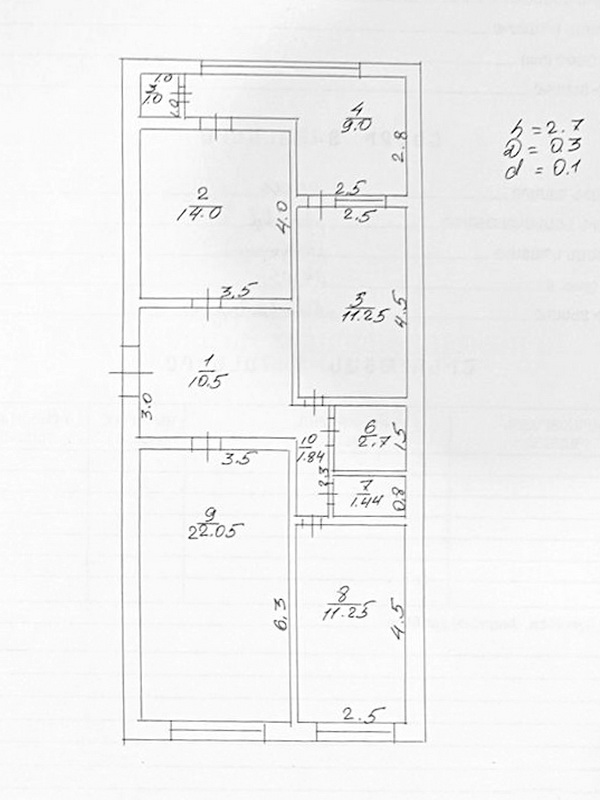 1.0
3
1.0
1.0
4
9.0
2.8
h = 2.7
D = 0.3
d = 0.1
2
14.0
4.0
2.5
2.5
3.5
5
11.25
4.5
1
10.5
3.0
3.5
10
1.84
2.3
6
2.7
1.5
7
1.44
0.8
9
22.05
6.3
8
11.25
4.5
2.5